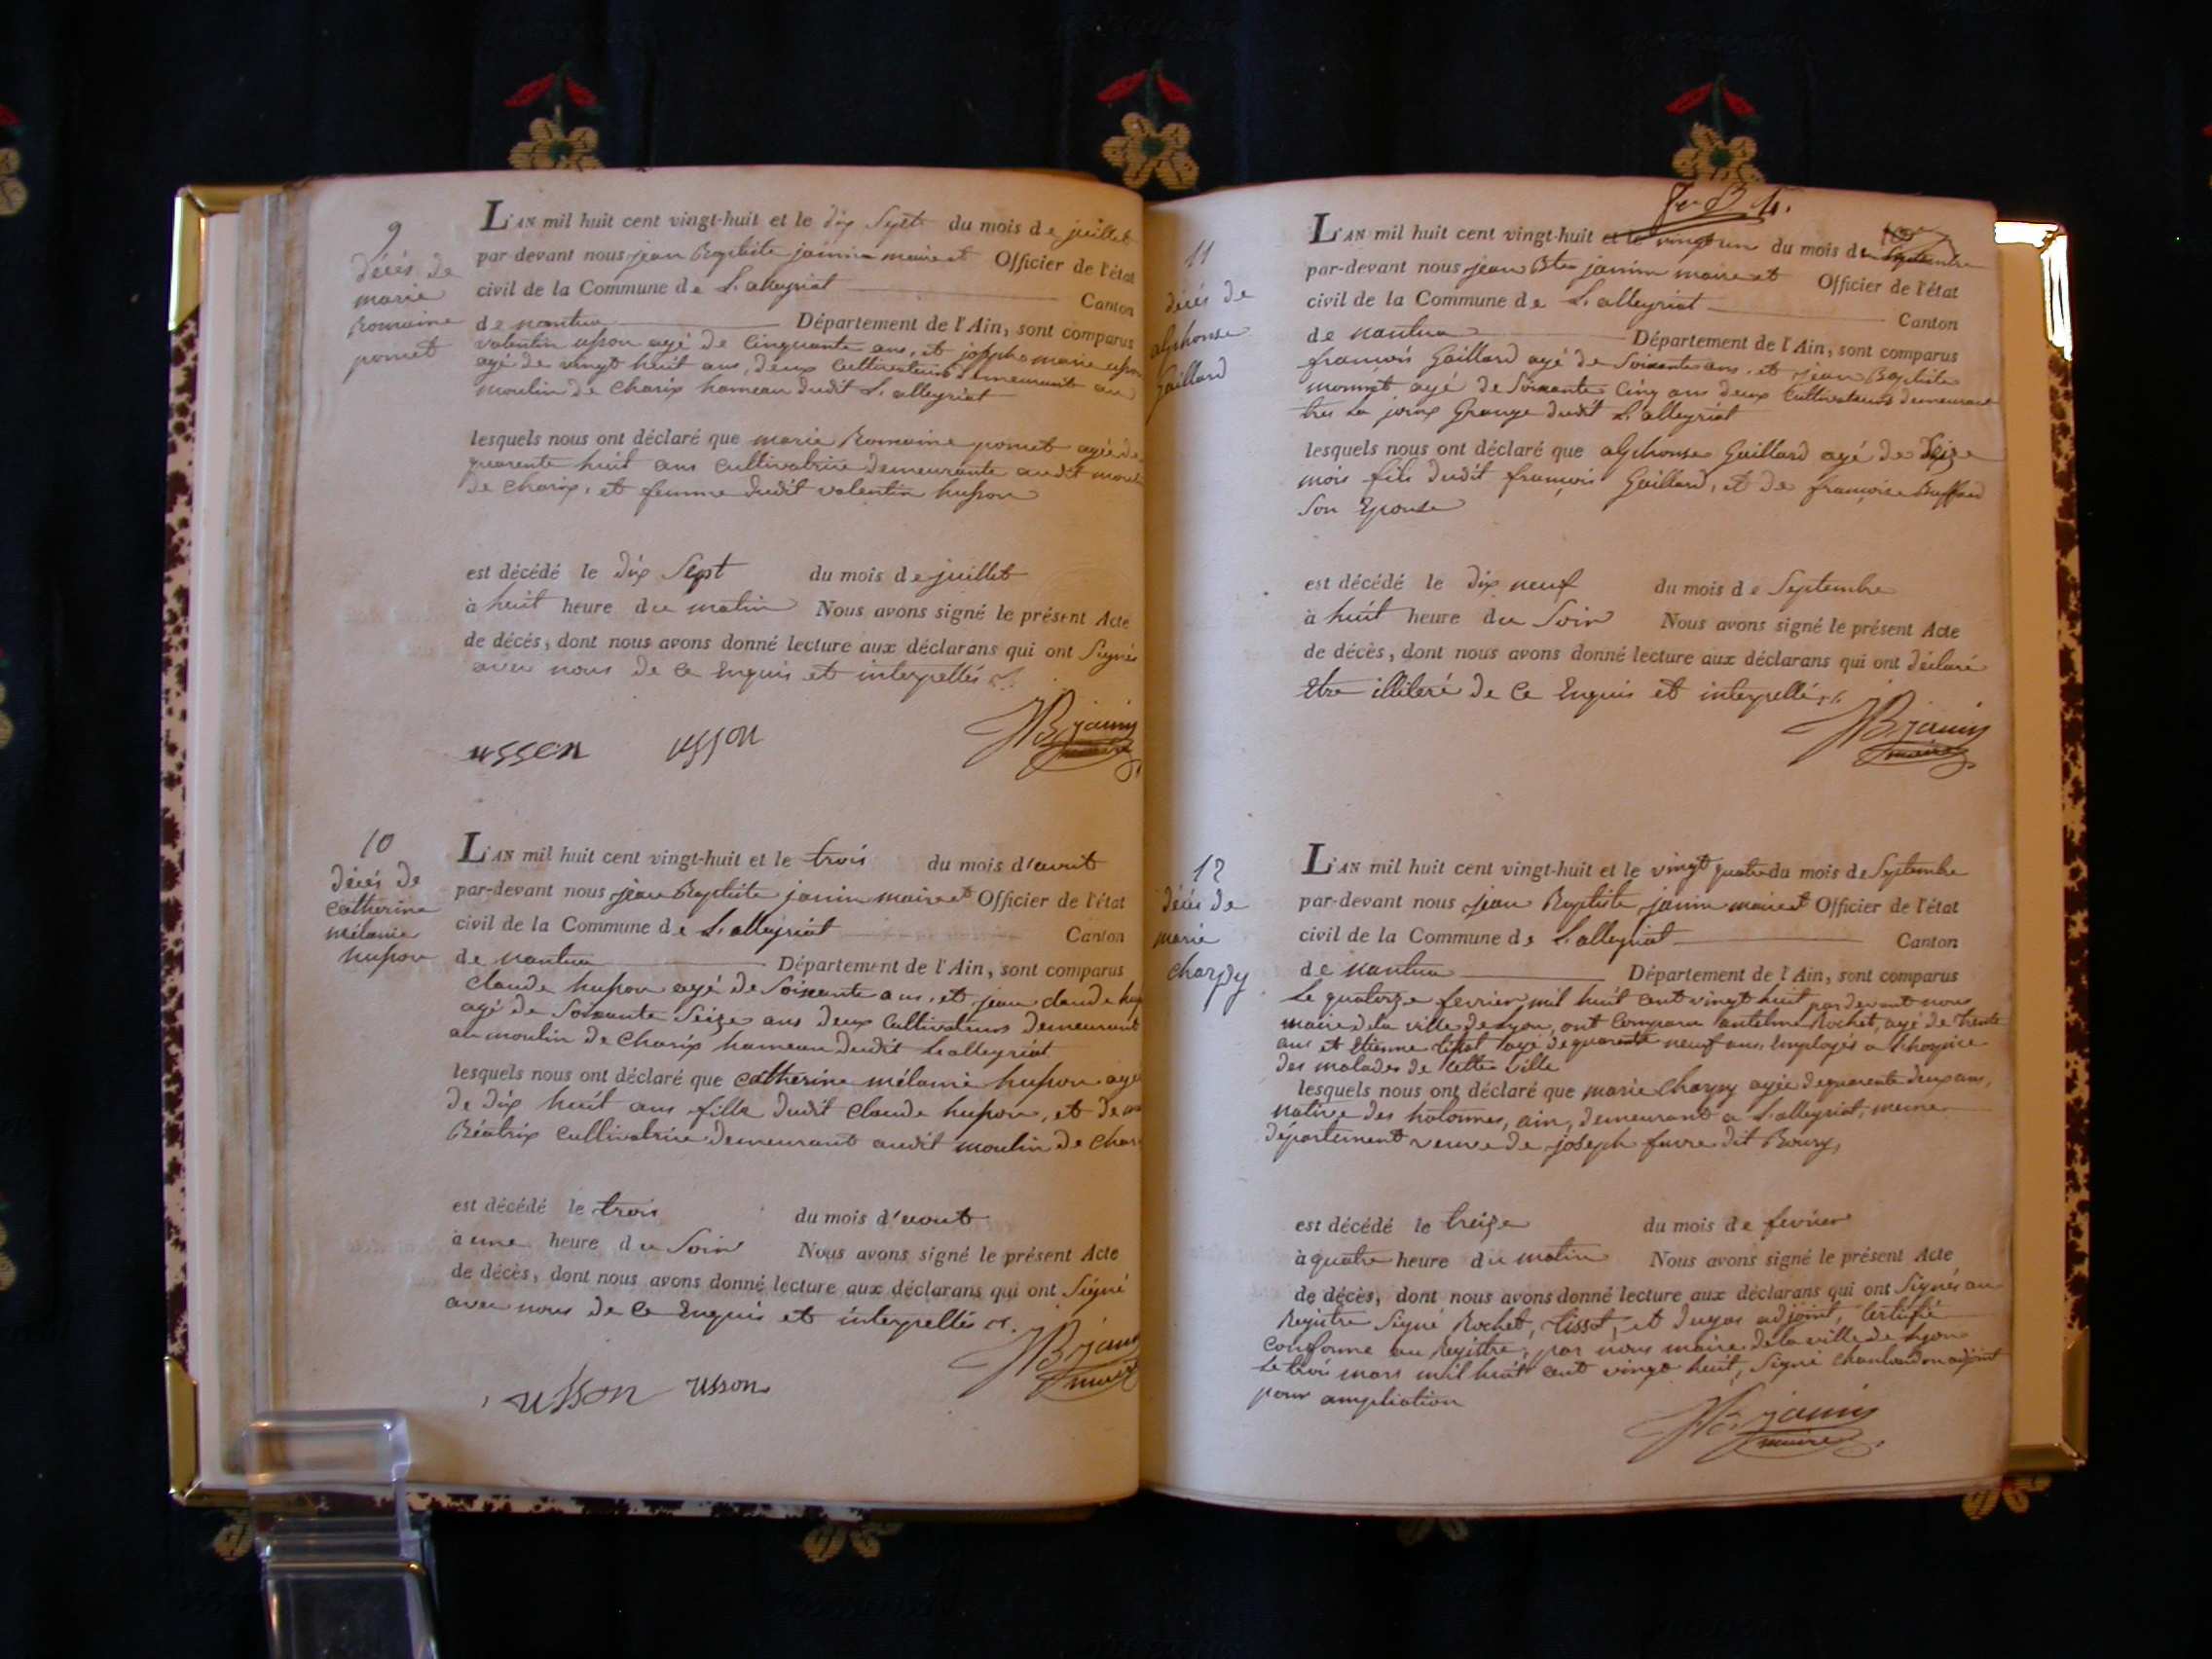 9
décés de
marie
Romaine
pomet
L'AN mil huit cent vingt-huit et le dix Sept du mois de juillet
par devant nous jean Baptiste janin maire et Officier de l'état
civil de la Commune de L'alleyriat Canton
de nantua Département de l'Ain, sont comparus
valentin uson agé de Cinquante ans, et joseph marie
agé de vingt huit ans, deux Cultivateurs demeurants au
moulin de Charix hameau dudit L'alleyriat
lesquels nous ont déclaré que marie Romaine pomet agée de
quarente huit ans cultivatrice demeurante audit
de Charix, et femme dudit valentin husson
est décédé le dix Sept du mois de juillet
à huit heure du matin Nous avons signé le présent Acte
de décés, dont nous avons donné lecture aux déclarans qui ont Signés
avec nous de Ce Enquis et interpellés
usson usson JB janin
maire
10
décés de
catherine
mélanie
husson
L'AN mil huit cent vingt-huit et le trois du mois d'aout
par-devant nous jean Baptiste janin maire et Officier de l'état
civil de la Commune de L'alleyriat Canton
de nantua Département de l'Ain, sont comparus
Claude husson agé de Soixante ans, et jean claude
agé de Soixante Seize ans deux Cultivateurs demeurant
au moulin de Charix hameau dudit L'alleyriat
lesquels nous ont déclaré que catherine mélanie husson agé
de dix huit ans fille dudit Claude husson, et de
Béatrix Cultivatrice demeurant audit moulin de
est décédé le trois du mois d'aout
à une heure du Soir Nous avons signé le présent Acte
de décès, dont nous avons donné lecture aux déclarans qui ont Signé
avec nous de Ce Enquis et interpellés
usson usson JB janin
maire
11
décés de
alphonse
Gaillard
L'AN mil huit cent vingt-huit et le vingt un du mois de Septembre
par-devant nous jean Bte janin maire et Officier de l'état
civil de la Commune de L'alleyriat Canton
de nantua Département de l'Ain, sont comparus
françois Gaillard agé de Soixante ans, et jean Baptiste
monnet agé de Soixante Cinq ans deux Cultivateurs demeurant
Grange dudit L'alleyriat
lesquels nous ont déclaré que alphonse Gaillard agé de
mois fils dudit françois Gaillard, et de françoise
Son Epouse
est décédé le dix neuf du mois de Septembre
à huit heure du Soir Nous avons signé le présent Acte
de décès, dont nous avons donné lecture aux déclarans qui ont déclaré
Etre illiteré de Ce Enquis et interpellé
JB janin
maire
12
décés de
marie
Charpy
L'AN mil huit cent vingt-huit et le vingt quatre du mois de Septembre
par-devant nous jean Baptiste janin maire et Officier de l'état
civil de la Commune de L'alleyriat Canton
de nantua Département de l'Ain, sont comparus
Le quatorze fevrier mil huit cent vingt huit par devant nous
maire de la ville de Lyon, ont Comparu antelme Rochet, agé de trente
ans et Etienne tissot agé de quarante neuf ans, Employés a l'hospice
des malades de Cette ville
lesquels nous ont déclaré que marie Charpy agée de quarante deux ans,
native des hotonnes, ain, demeurant a L'alleyriat, meme
département veuve de joseph favre dit Boury,
est décédé le treize du mois de fevrier
à quatre heure du matin Nous avons signé le présent Acte
de décès, dont nous avons donné lecture aux déclarans qui ont Signés au
Registre Signé Rochet, tissot, et adjoint, Certifié
Conforme au Registre, par nous maire de la ville de Lyon
le trois mars mil huit cent vingt huit, Signé adjoint
pour ampliation
JB janin
maire